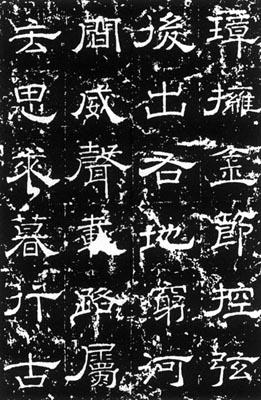 璋擁金節控弦
後出右地窮河
間威聲載路屬
去思来暮行古